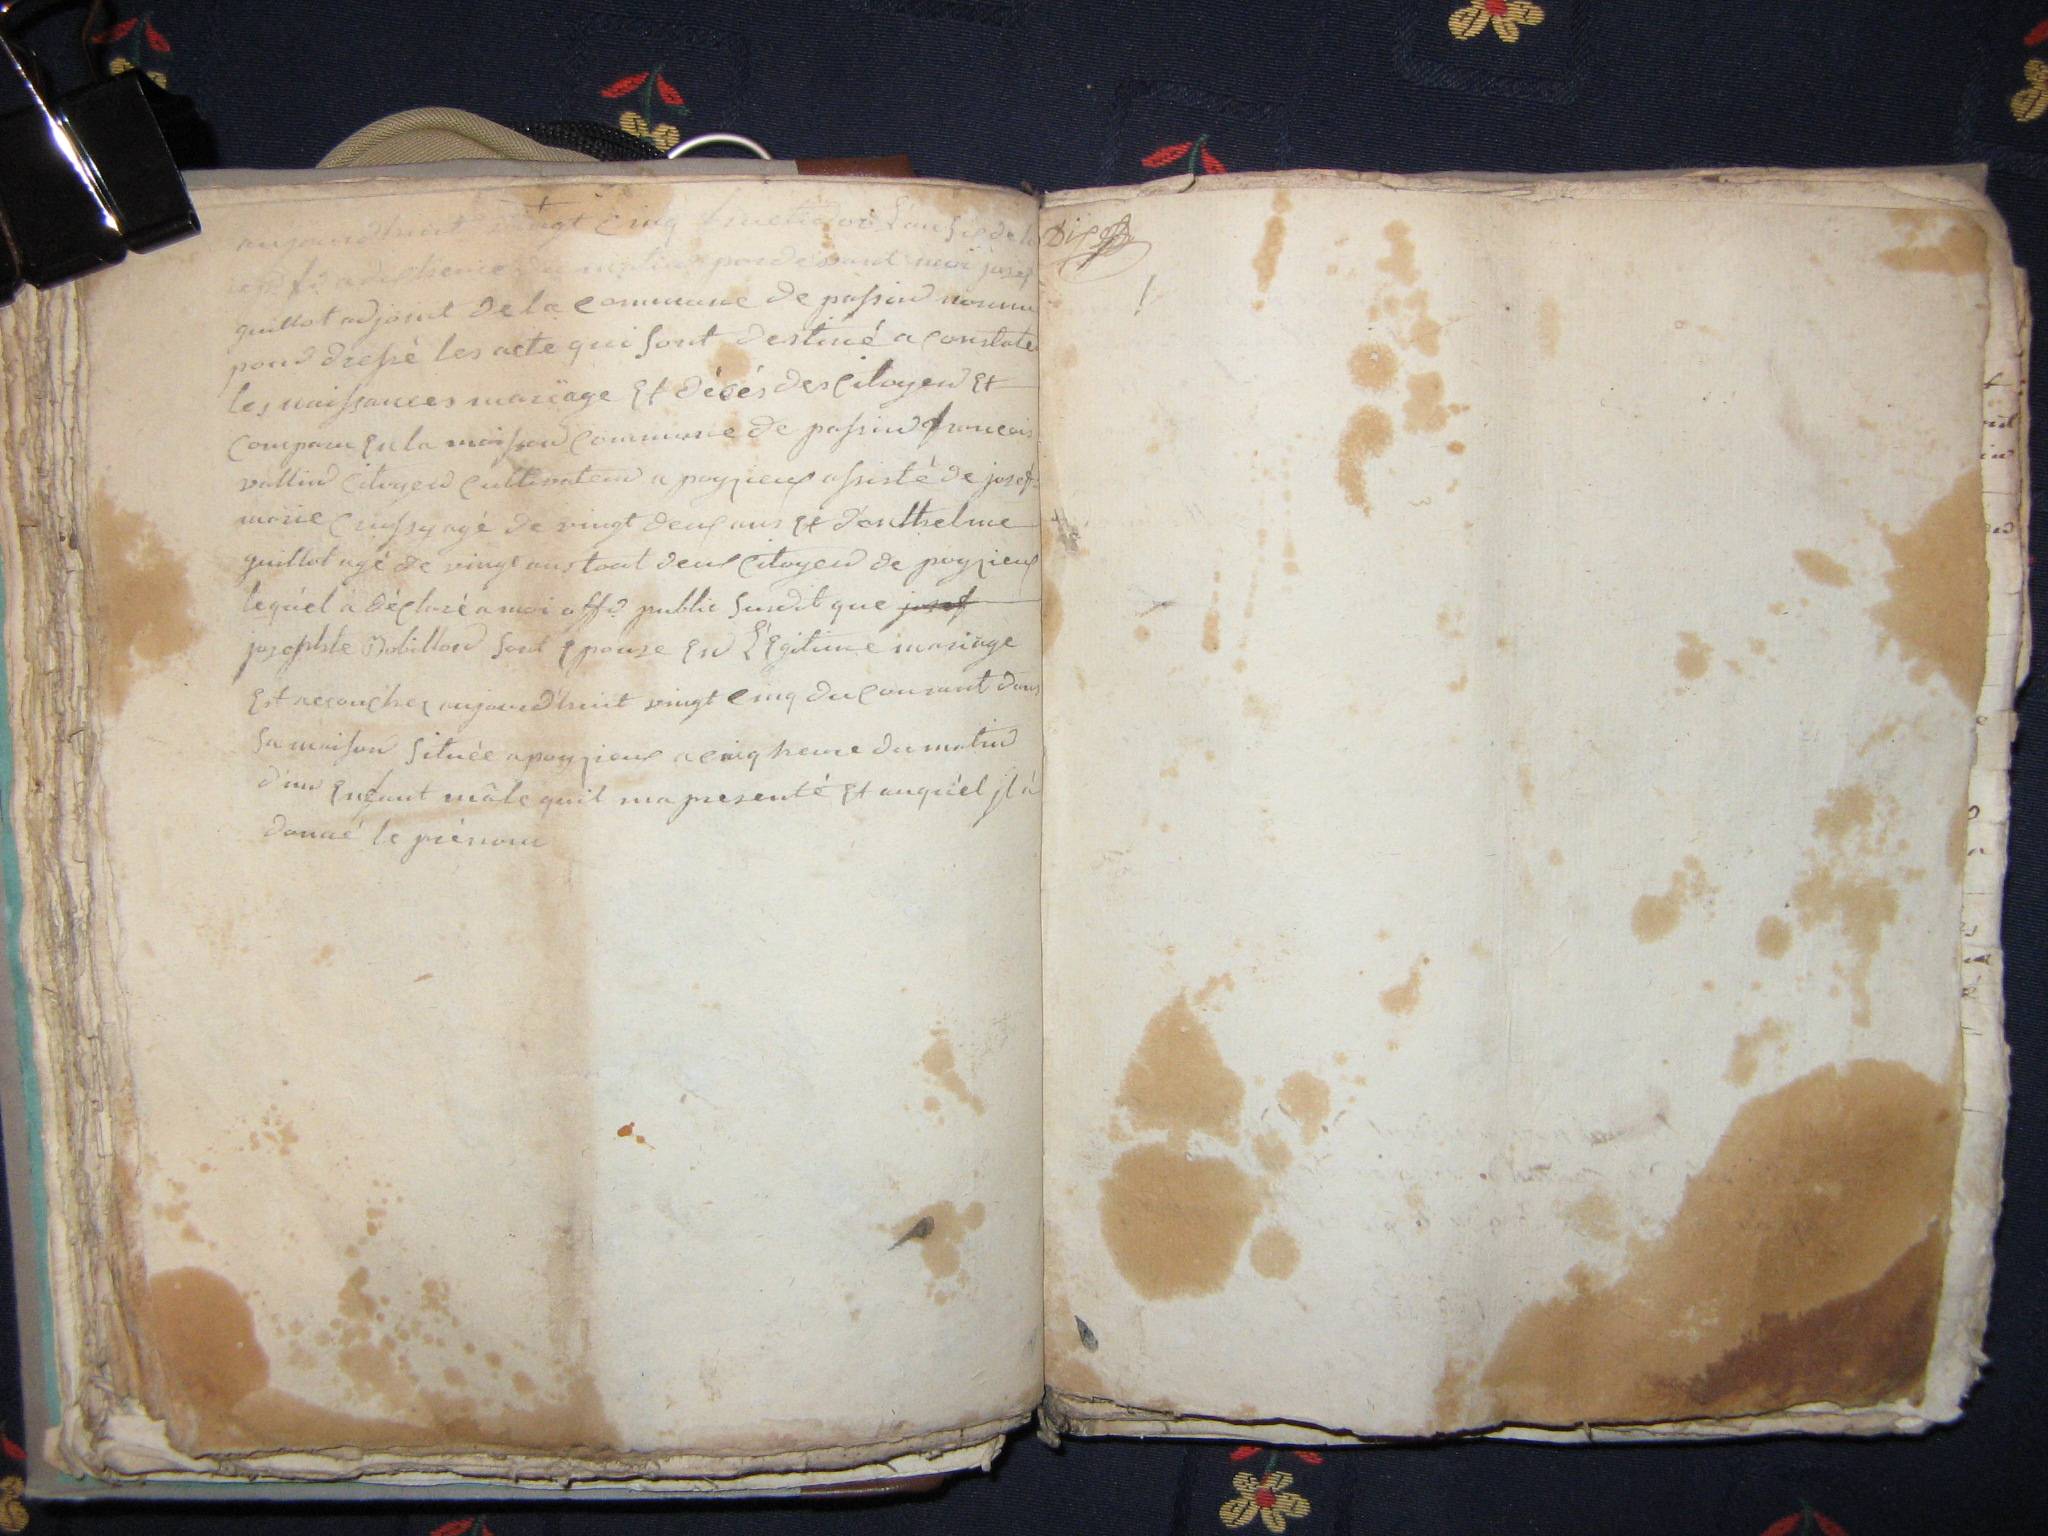 aujourdhuit vingt cinq fructidor L'an six de la
a dix heure du matin pardevant moi josep
guillot adjoint de la commune de passin nommé
pour dressé les acte qui sont destiné a constater
les naissances mariage Et décés des citoyen Et
comparu En la maison commune de passin francois
vallin citoyen cultivateur a poyzieux assisté de josep
marie crussy agé de vingt deux ans Et d'anthelme
guillot agé de vingt ans tout deux citoyen de poyzieux
lequ'el à déclaré a moi offr public susdit que josef
josephte Bobillon sont Epouse En Légitime mariage
Est accouchez aujourdhuit vingt cinq du courant dans
sa maison située a poyzieux a cinq heure du matin
d'un Enfant mâle quil ma presenté Et auqu'el jl à
donné le prénom